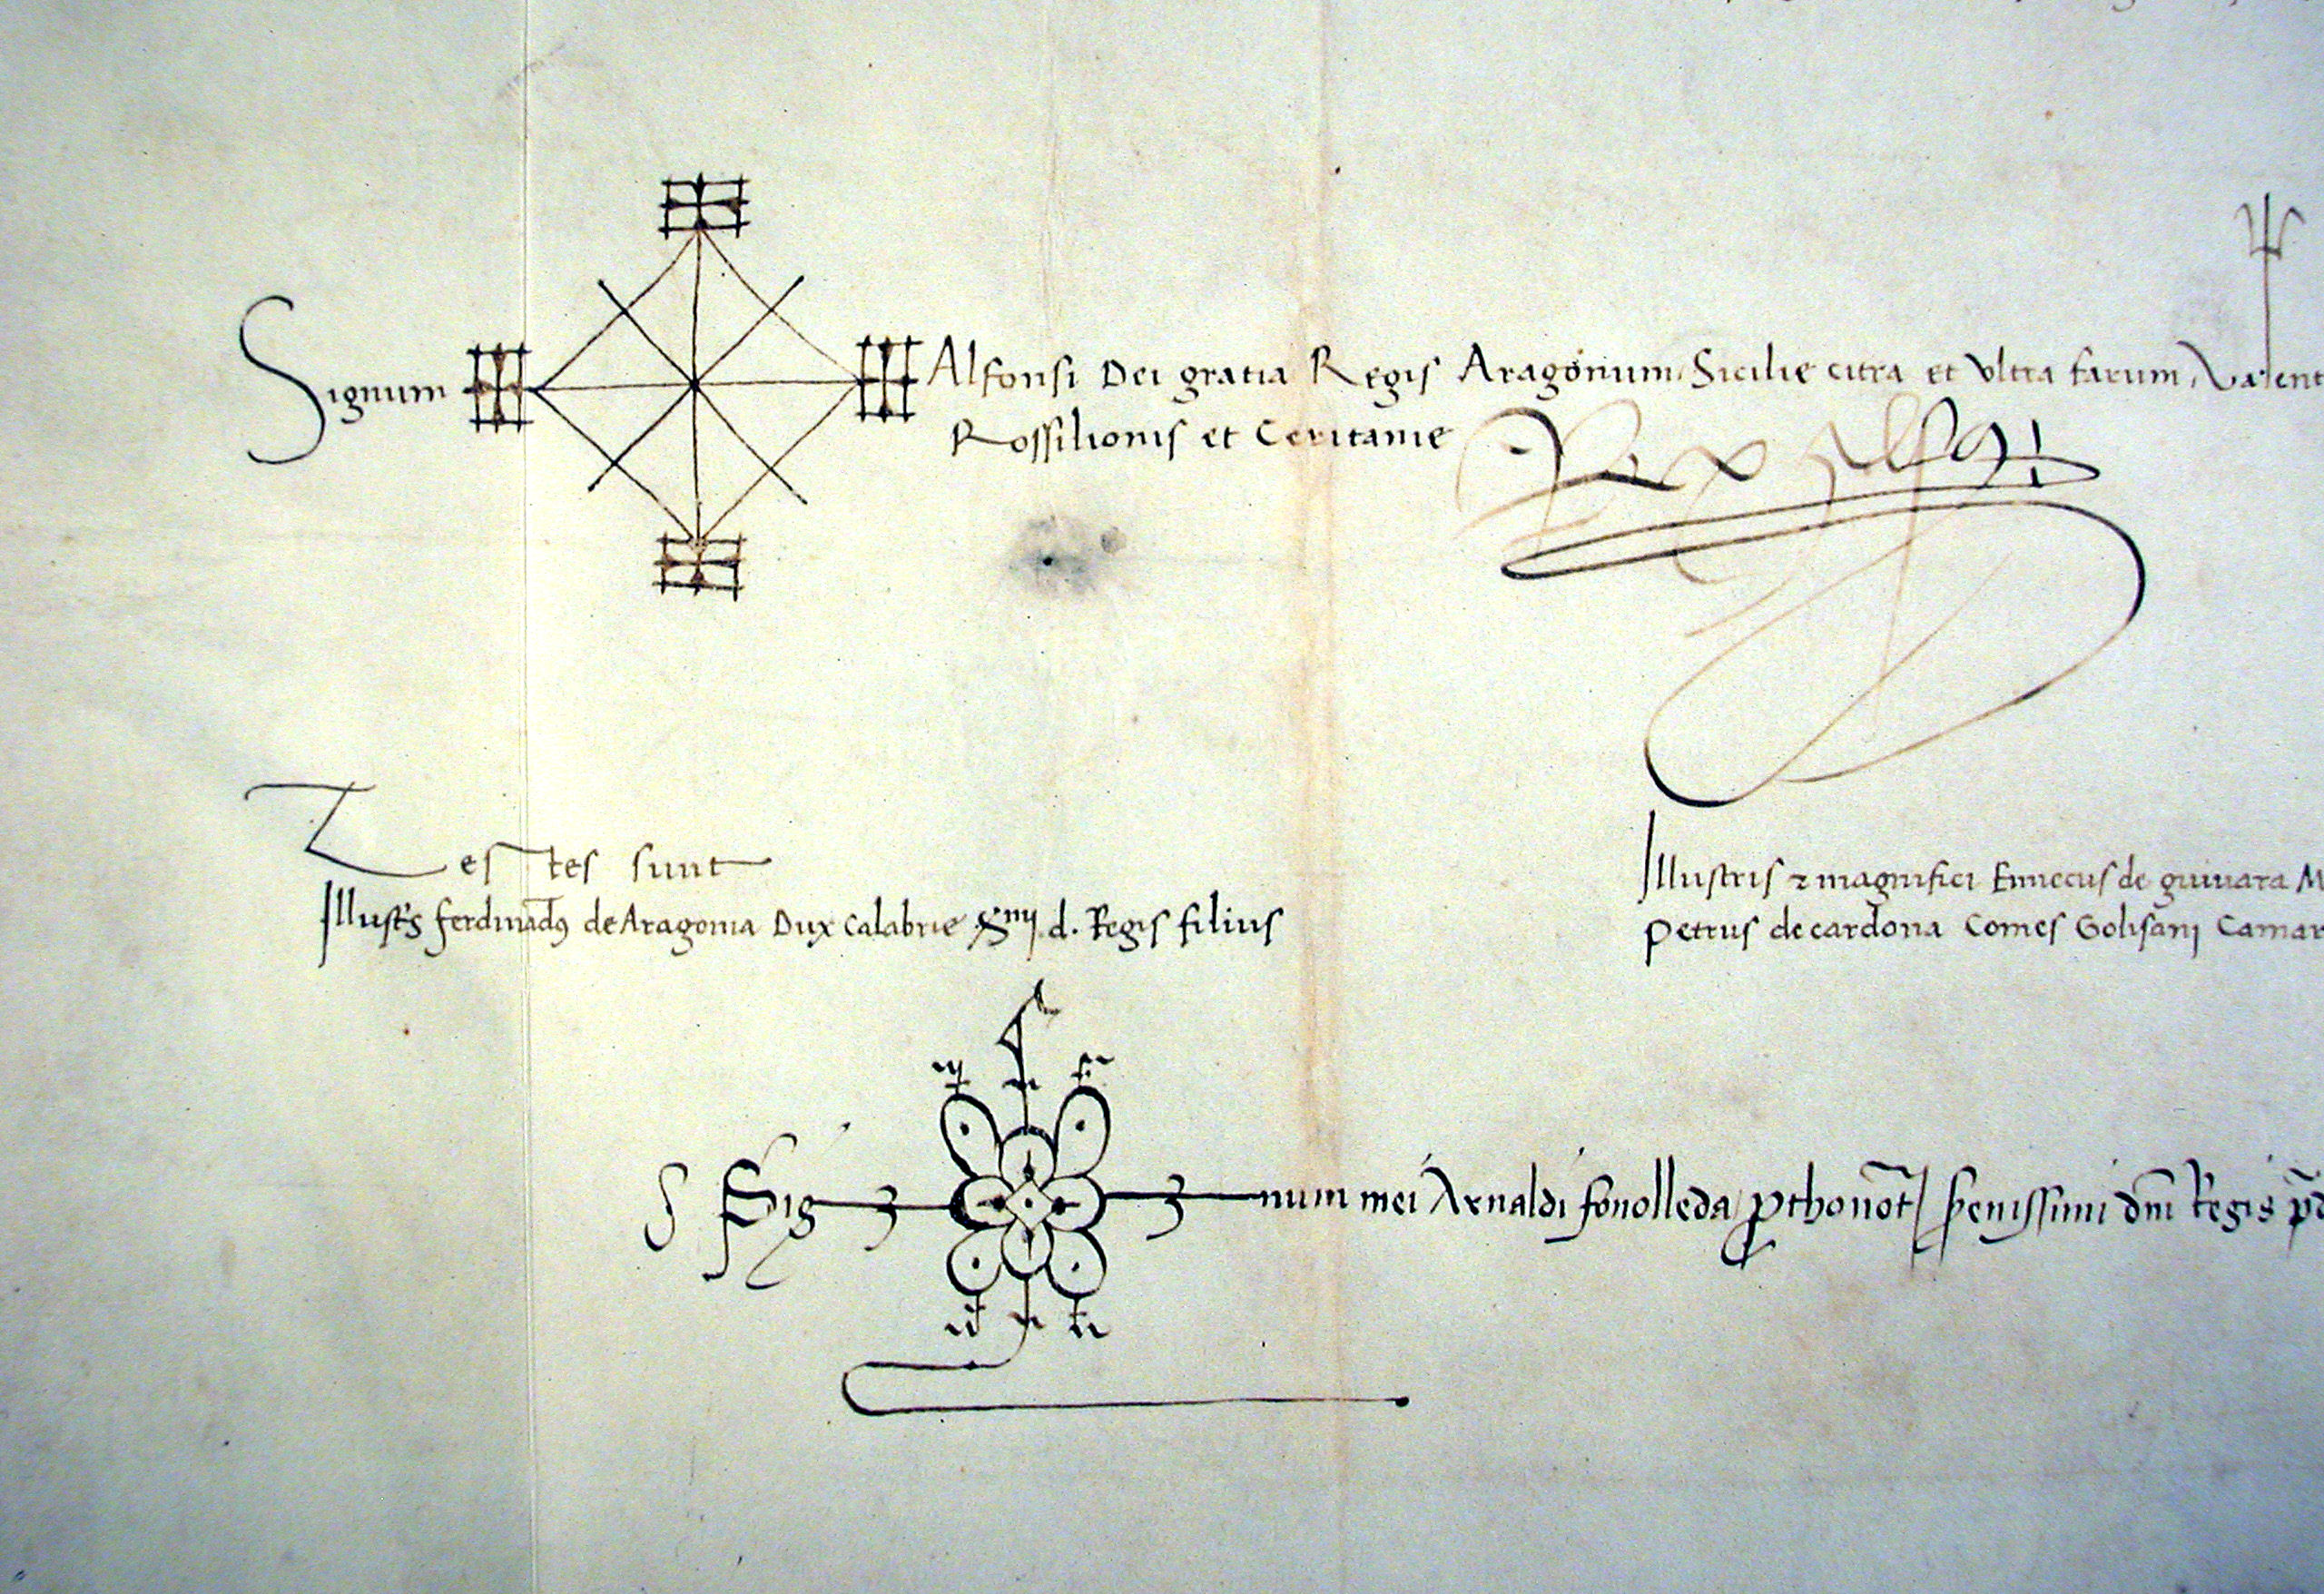 Signum Alfonsi Dei gratia Regis Aragonum Sicilie citra et ultra farum, Valent
Rossilionis et Ceritanie
Rex Alfonsus
Testes sunt
Illustrˢ ferdinādꝰ de Aragonia Dux Calabrie d. Regis filius
Illustris ⁊ magnifici Ennecus de guivara M
Petrus de cardona Comes Golisani Camar
Sig num mei Arnaldi fonolleda ꝓthonot̄ serenissimi dn̄i Regis